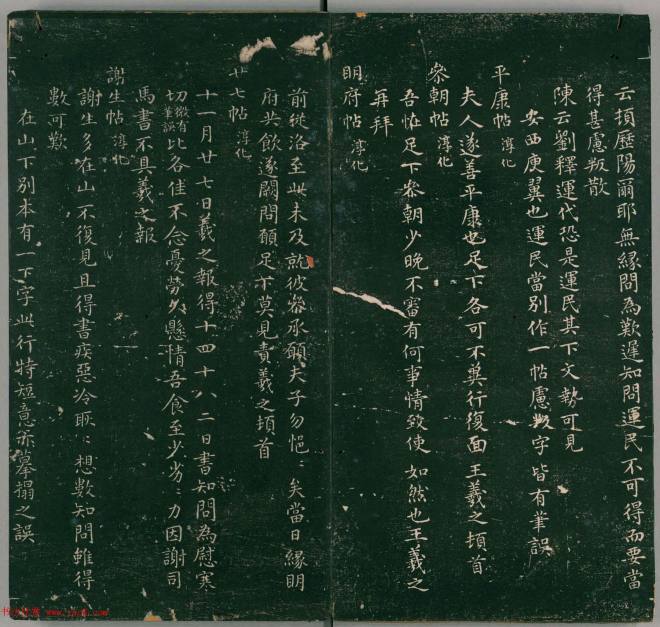 云頊歷陽爾耶無緣問為歎遲知問運民不可得而要當
得甚慮叛散
陳云劉釋運代恐是運民其下文勢可見
安西庾翼也運民當別作一帖慮叛字皆有筆誤
平康帖 淳化
夫人遂善平康也足下各可不奠行復面王羲之頊首
參朝帖 淳化
吾恠足下參朝少晚不審有何事情致使如然也王羲之
再拜
明府帖 淳化
前從洛至此未及就彼參承願夫子勿悒〻矣當日緣明
府共飲遂闕問願足下莫見責羲之頊首
廿七帖 淳化
十一月廿七日羲之報得十四十八二日書知問為慰寒
切微有筆誤比各佳不念憂勞久懸情吾食至少劣〻力因謝司
馬書不具羲之報
謝生帖 淳化
謝生多在山不復見且得書疾惡冷耿〻想數知問雖得
數可歎
在山下別本有一下字此行特短意亦摹搨之誤
www.yac8.com